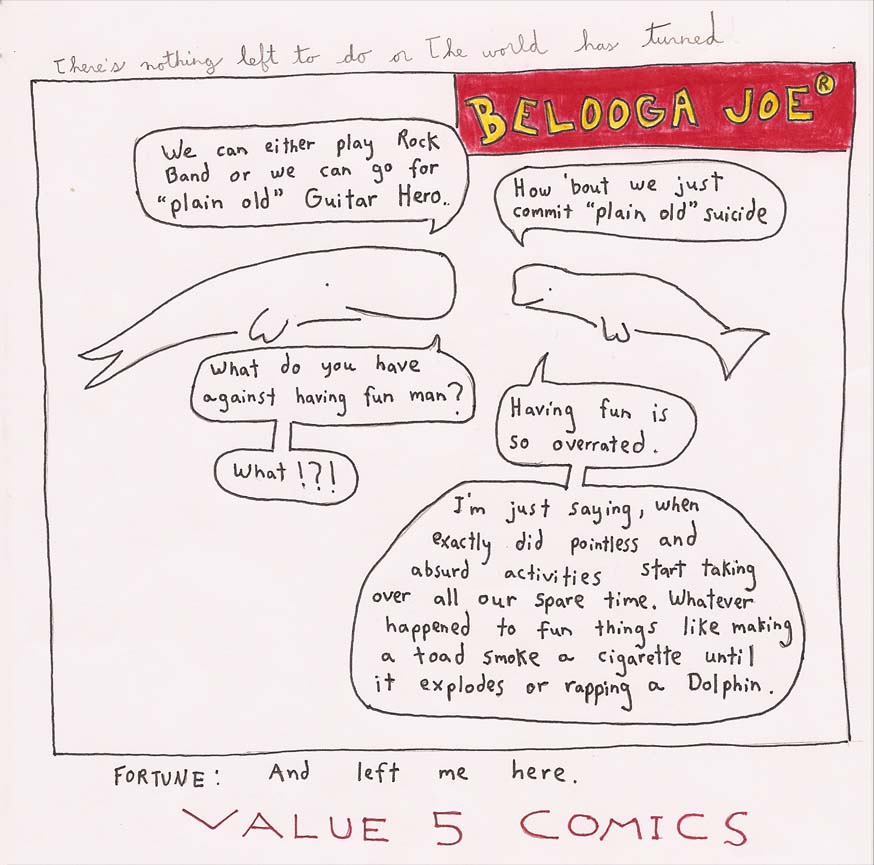 There's nothing left to do or The world has turned
BELOOGA JOE®
We can either play Rock
Band or we can go for
"plain old" Guitar Hero..
How 'bout we just
commit "plain old" suicide
What do you have
against having fun man?
Having fun is
so overrated.
What!?!
I'm just saying, when
exactly did pointless and
absurd activities start taking
over all our spare time. Whatever
happened to fun things like making
a toad smoke a cigarette until
it explodes or rapping a Dolphin.
FORTUNE: And left me here.
VALUE 5 COMICS